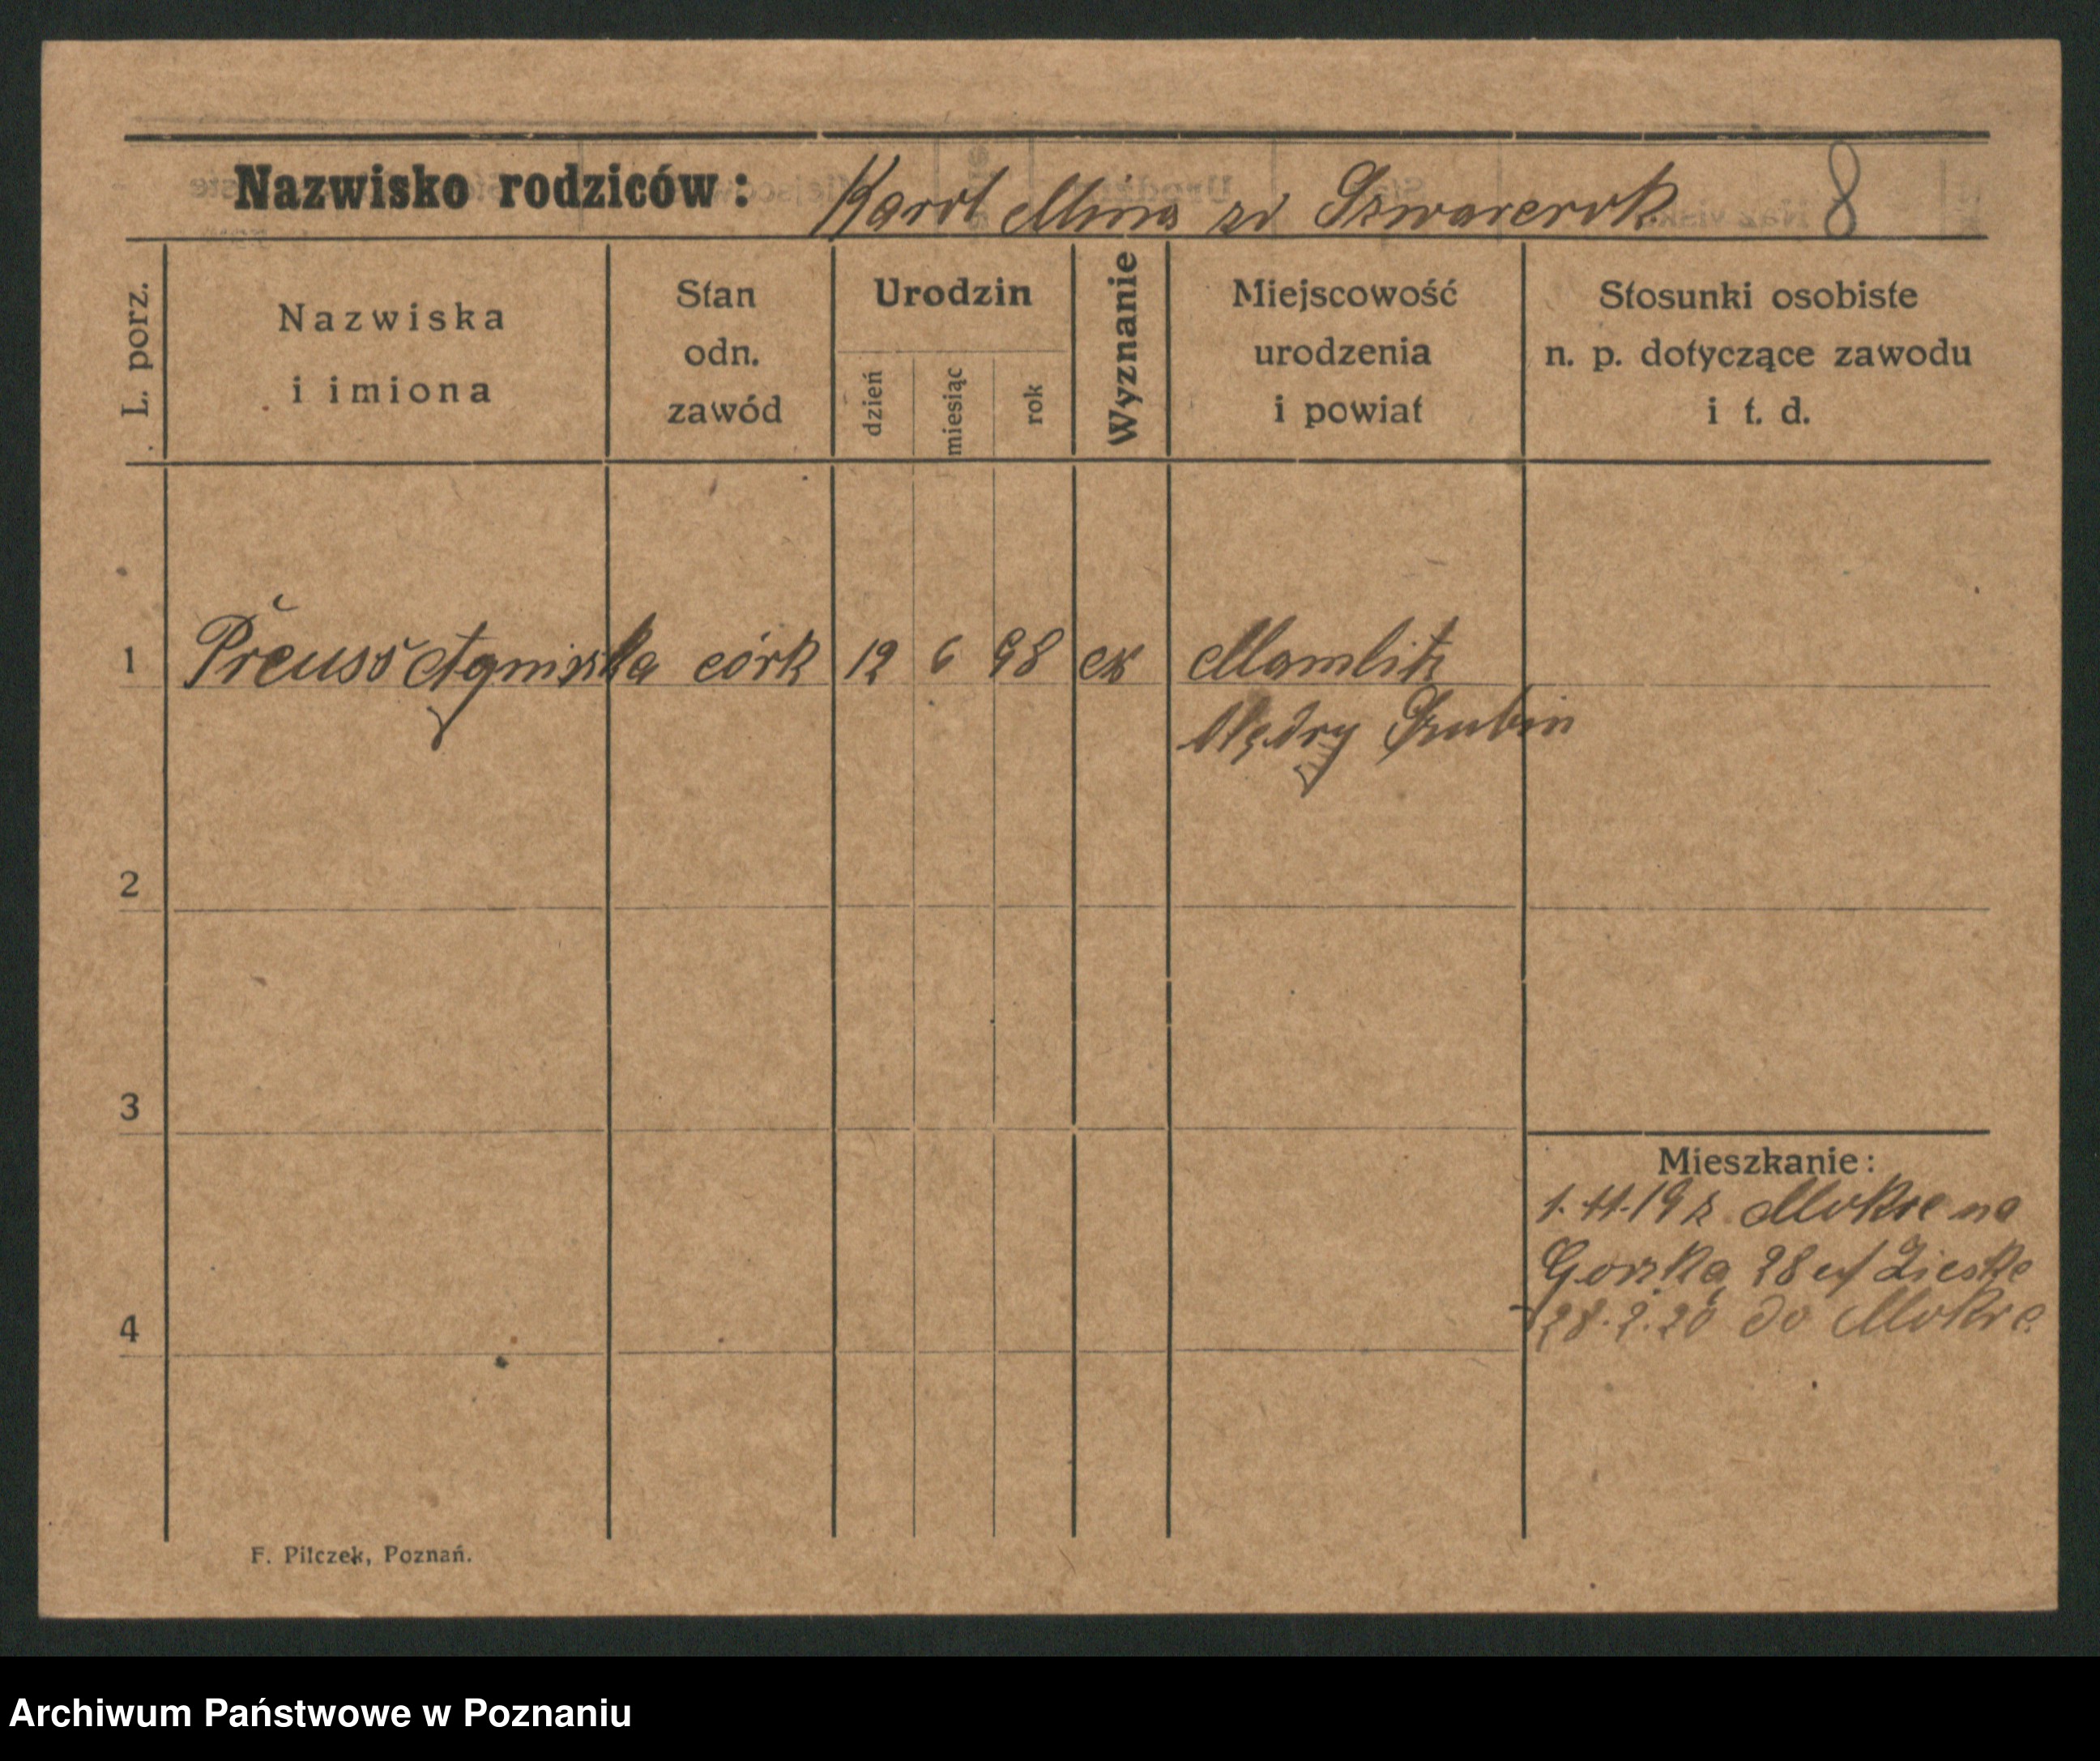 Nazwisko rodziców: Karol Mina zd Szwarcrok 8
L. porz.
Nazwiska i imiona
Stan odn. zawód
Urodzin
dzień
miesiąc
rok
Wyznanie
Miejscowość urodzenia i powiat
Stosunki osobiste n. p. dotyczące zawodu i t. d.
1 Preuss Agniszka córk 12 6 98 ew Mamlitz
Szubin
2
3
4
Mieszkanie:
1.11.19 z Mokre na
28 Zieske
28.2.20 do Mokre
F. Pilczek, Poznań.
Archiwum Państwowe w Poznaniu